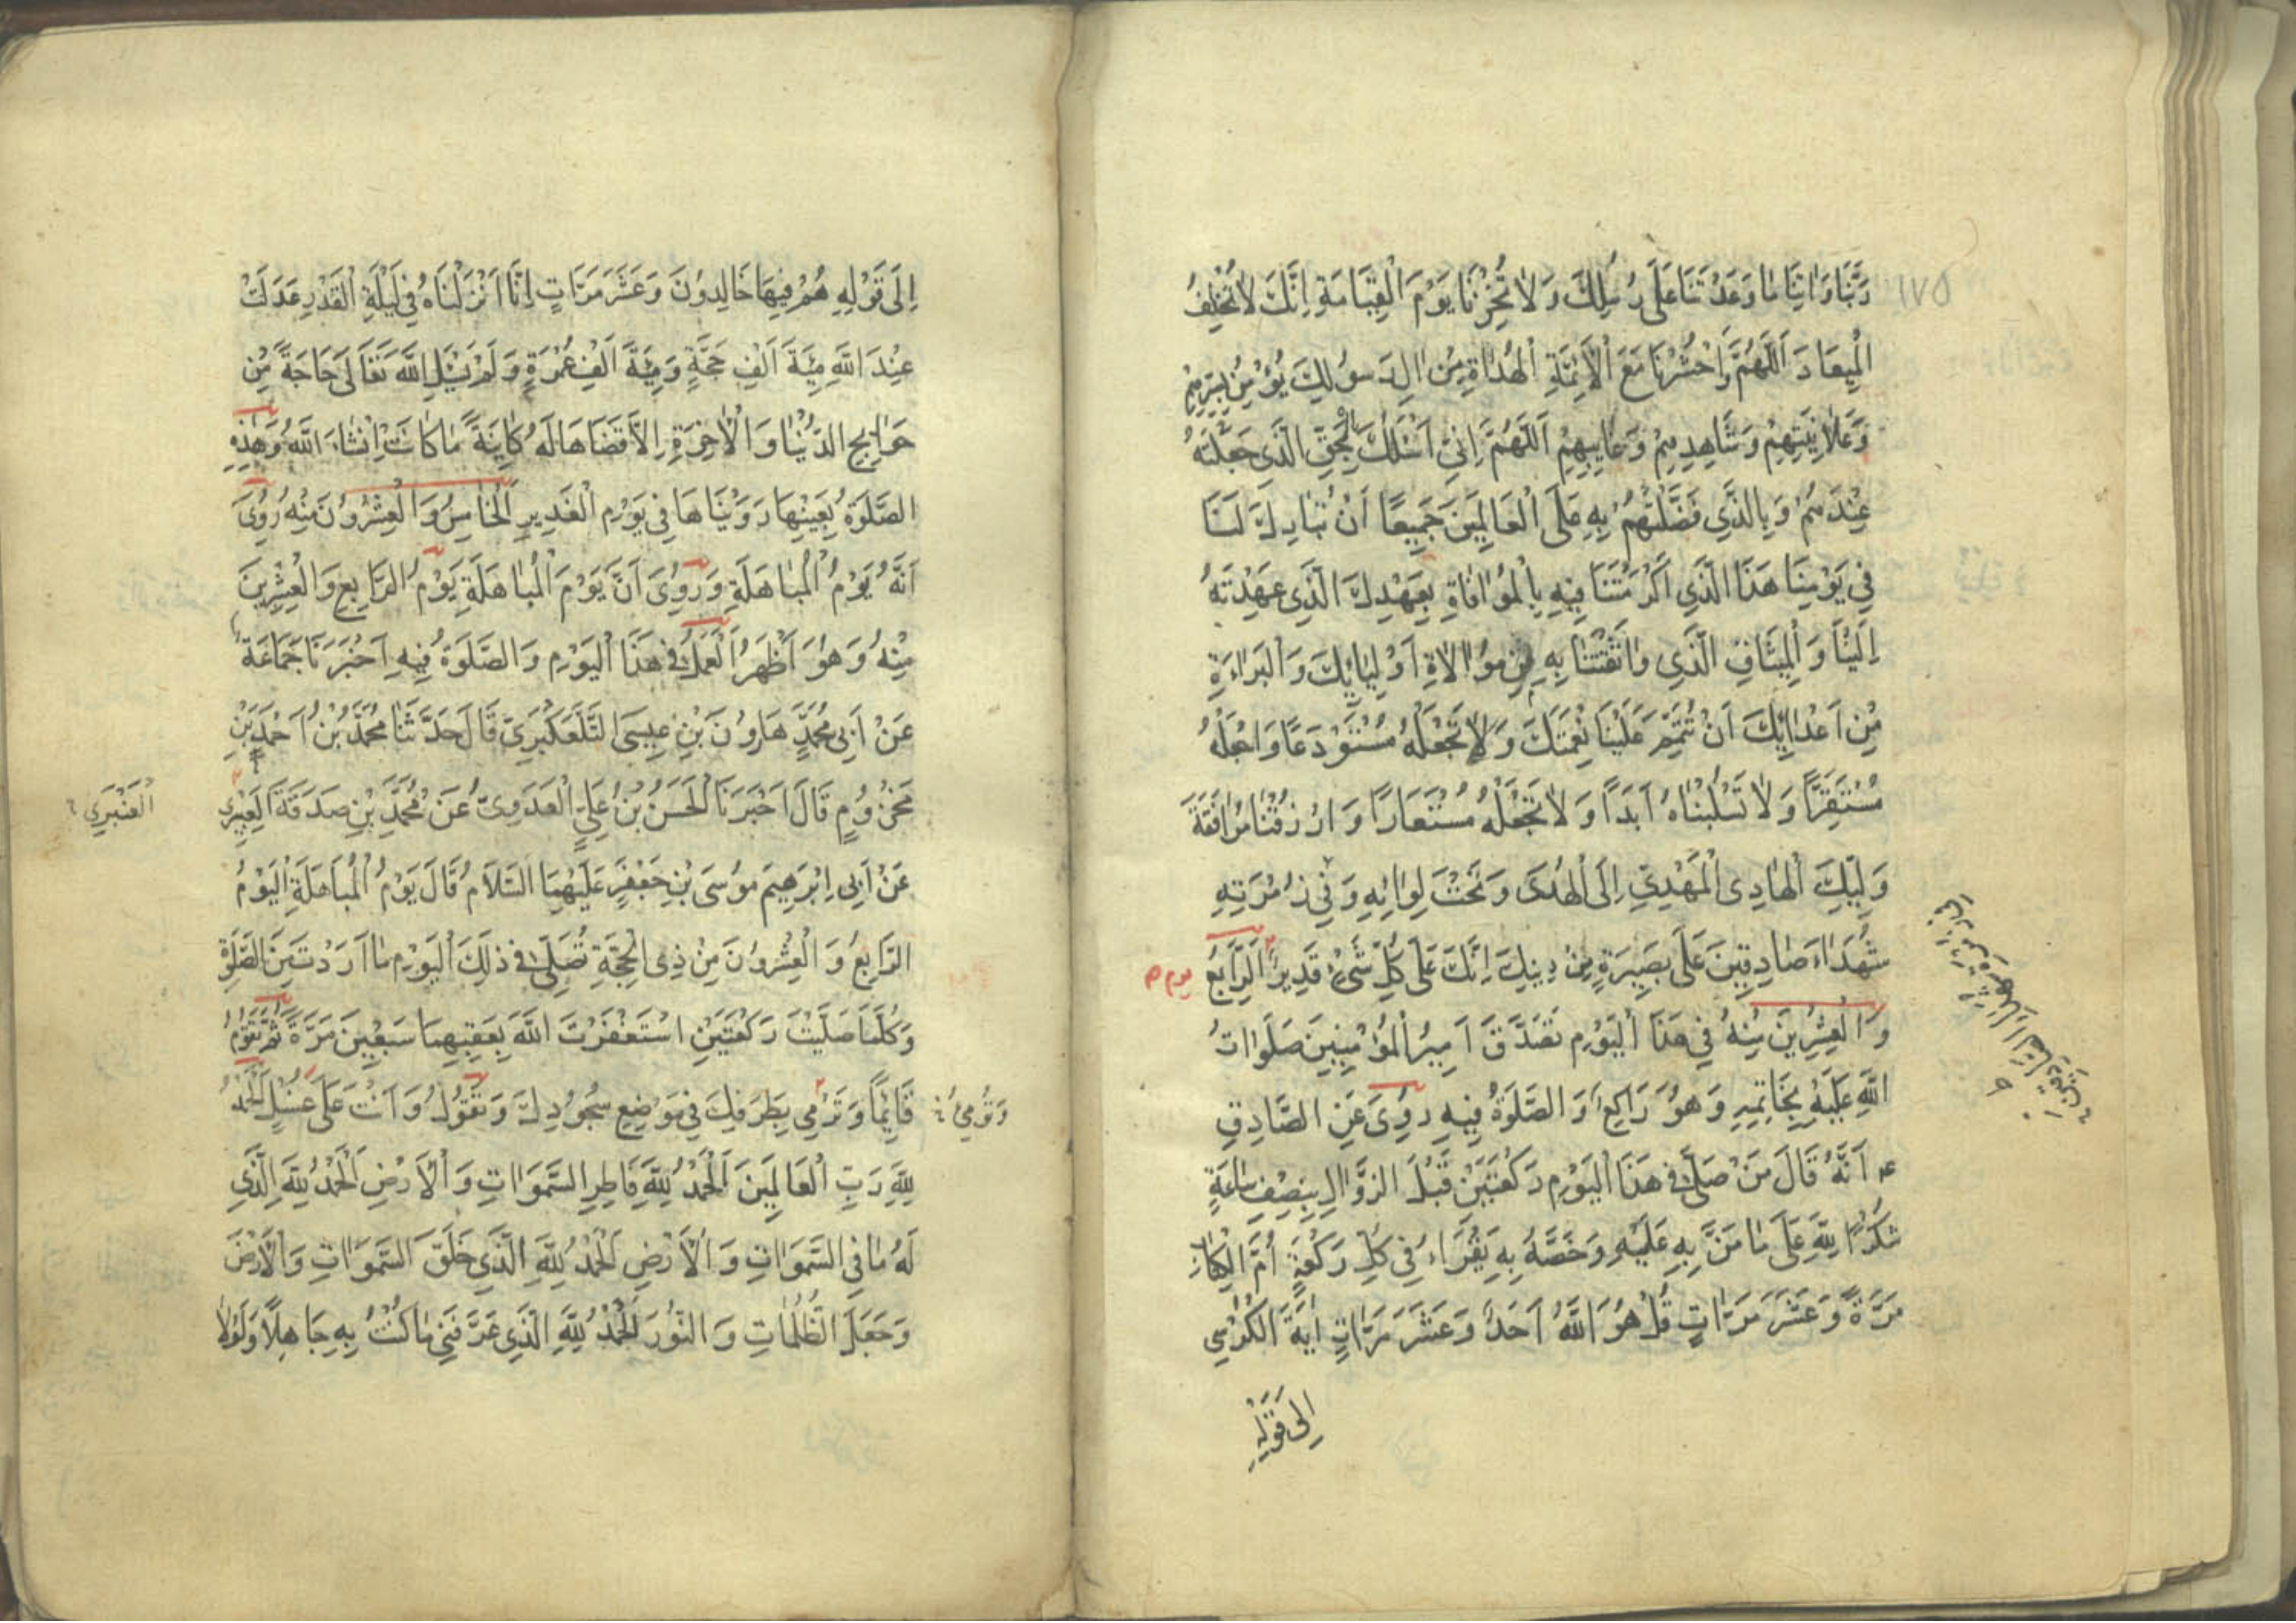 ١٧٥
رَبَّنَا وَاٰتِنَا مَا وَعَدْتَنَا عَلَى رُسُلِكَ وَلَا تُخْزِنَا يَوْمَ الْقِيَامَةِ اِنَّكَ لَا تُخْلِفُ
الْمِيعَادَ اَللَّهُمَّ وَاحْشُرْنَا مَعَ الْاَئِمَّةِ الْهُدَاةِ مِنْ اٰلِ رَسُولِكَ نُؤْمِنُ بِسِرِّهِمْ
وَعَلَانِيَتِهِمْ وَشَاهِدِهِمْ وَغَايِبِهِمْ اَللَّهُمَّ اِنِّي اَسْئَلُكَ بِالْحَقِّ الَّذِي جَعَلْتَهُ
عِنْدَهُمْ وَبِالَّذِي فَضَّلْتَهُمْ بِهِ عَلَى الْعَالَمِينَ جَمِيعًا اَنْ تُبَارِكَ لَنَا
فِي يَوْمِنَا هَذَا الَّذِي اَكْرَمْتَنَا فِيهِ بِالْمُوَافَاةِ بِعَهْدِكَ الَّذِي عَهِدْتَهُ
اِلَيْنَا وَالْمِيثَاقِ الَّذِي وَاثَقْتَنَا بِهِ مِنْ مُوَالَاةِ اَوْلِيَائِكَ وَالْبَرَاءَةِ
مِنْ اَعْدَائِكَ اَنْ تُتَمِّمَ عَلَيْنَا نِعْمَتَكَ وَلَا تَجْعَلَهُ مُسْتَوْدَعًا وَاجْعَلْهُ
مُسْتَقِرًّا وَلَا تَسْلُبْنَاهُ اَبَدًا وَلَا تَجْعَلْهُ مُسْتَعَارًا وَارْزُقْنَا مُرَافَقَةَ
وَلِيِّكَ الْهَادِي الْمَهْدِيِّ اِلَى الْهُدَى وَتَحْتَ لِوَائِهِ وَفِي زُمْرَتِهِ
شُهَدَاءَ صَادِقِينَ عَلَى بَصِيرَةٍ مِنْ دِينِكَ اِنَّكَ عَلَى كُلِّ شَيْءٍ قَدِيرٌ اَلرَّابِعُ
وَالْعِشْرِينَ مِنْهُ فِي هَذَا الْيَوْمِ تَصَدَّقَ اَمِيرُ الْمُؤْمِنِينَ صَلَوَاتُ
اللهِ عَلَيْهِ بِخَاتَمِهِ وَهُوَ رَاكِعٌ وَالصَّلَوةُ فِيهِ رُوِيَ عَنِ الصَّادِقِ
ع اَنَّهُ قَالَ مَنْ صَلَّى فِي هَذَا الْيَوْمِ رَكْعَتَيْنِ قَبْلَ الزَّوَالِ بِنِصْفِ سَاعَةٍ
شُكْرًا لِلّٰهِ عَلَى مَا مَنَّ بِهِ عَلَيْهِ وَخَصَّهُ بِهِ يَقْرَاءُ فِي كُلِّ رَكْعَةٍ اُمَّ الْكِتَابِ
مَرَّةً وَعَشْرَ مَرَّاتٍ قُلْ هُوَ اللهُ اَحَدٌ وَعَشْرَ مَرَّاتٍ اٰيَةَ الْكُرْسِي
اِلَى قَوْلِهِ
يوم
اِلَى قَوْلِهِ هُمْ فِيهَا خَالِدُونَ وَعَشْرَ مَرَّاتٍ اِنَّا اَنْزَلْنَاهُ فِي لَيْلَةِ الْقَدْرِ عَدَلَتْ
عِنْدَ اللهِ مِئَةَ اَلْفِ حَجَّةٍ وَمِئَةَ اَلْفِ عُمْرَةٍ وَلَمْ يَسْئَلِ اللهَ تَعَالَى حَاجَةً مِنْ
حَوَايِجِ الدُّنْيَا وَالْاٰخِرَةِ اِلَّا قَضَاهَا لَهُ كَايِنَةً مَا كَانَتْ اِنْشَاءَ اللهُ وَهَذِهِ
الصَّلَوةُ بِعَيْنِهَا رَوَيْنَاهَا فِي يَوْمِ الْغَدِيرِ اَلْخَامِسُ وَالْعِشْرُونَ مِنْهُ رُوِيَ
اَنَّهُ يَوْمُ الْمُبَاهَلَةِ وَرُوِيَ اَنَّ يَوْمَ الْمُبَاهَلَةِ يَوْمُ الرَّابِعِ وَالْعِشْرِينَ
مِنْهُ وَهُوَ اَظْهَرُ اَلْعَمَلُ فِي هَذَا الْيَوْمِ وَالصَّلَوةُ فِيهِ اَخْبَرَنَا جَمَاعَةٌ
عَنْ اَبِي مُحَمَّدٍ هَارُونَ بْنِ عِيسَى التَّلَّعُكْبَرِيِّ قَالَ حَدَّثَنَا مُحَمَّدُ بْنُ اَحْمَدَ بْنِ
مَخْزُومٍ قَالَ اَخْبَرَنَا الْحَسَنُ بْنُ عَلِيٍّ الْعَدَوِيُّ عَنْ مُحَمَّدِ بْنِ صَدَقَةَ الْعَنْبَرِي
اَلْعَنْبَرِي
عَنْ اَبِي اِبْرَهِيمَ مُوسَى بْنِ جَعْفَرٍ عَلَيْهِمَا السَّلَامُ قَالَ يَوْمُ الْمُبَاهَلَةِ الْيَوْمُ
الرَّابِعُ وَالْعِشْرُونَ مِنْ ذِي الْحِجَّةِ تُصَلِّي فِي ذَلِكَ الْيَوْمِ مَا اَرَدْتَ مِنَ الصَّلَوةِ
وَكُلَّمَا صَلَّيْتَ رَكْعَتَيْنِ اسْتَغْفَرْتَ اللهَ بِعَقِبِهِمَا سَبْعِينَ مَرَّةً ثُمَّ تَقُومُ
قَائِمًا وَتَرْمِي بِطَرَفِكَ فِي مَوْضِعِ سُجُودِكَ وَتَقُولُ وَاَنْتَ عَلَى غُسْلٍ اَلْحَمْدُ
وَتُومِئُ
لِلّٰهِ رَبِّ الْعَالَمِينَ اَلْحَمْدُ لِلّٰهِ فَاطِرِ السَّمَوَاتِ وَالْاَرْضِ اَلْحَمْدُ لِلّٰهِ الَّذِي
لَهُ مَا فِي السَّمَوَاتِ وَالْاَرْضِ اَلْحَمْدُ لِلّٰهِ الَّذِي خَلَقَ السَّمَوَاتِ وَالْاَرْضَ
وَجَعَلَ الظُّلُمَاتِ وَالنُّورَ اَلْحَمْدُ لِلّٰهِ الَّذِي عَرَّفَنِي مَا كُنْتُ بِهِ جَاهِلًا وَلَوْلَا